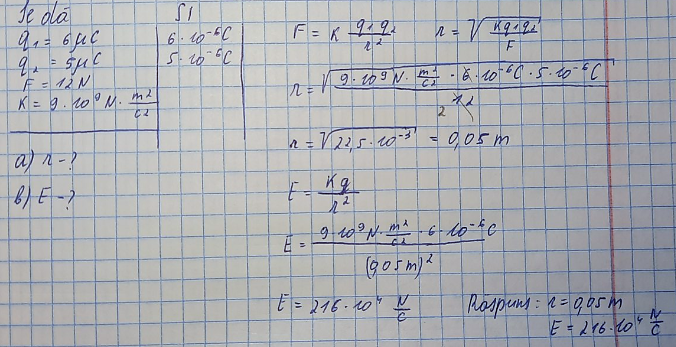 Se dă SI
q₁ = 6 μC 6·10⁻⁶C
q₂ = 5 μC 5·10⁻⁶C
F = 12 N
K = 9·10⁹ N· m²/c²
a) r - ?
b) E - ?
F = K q₁q₂/r² r = √(Kq₁q₂/F)
r = √(9·10⁹N· m²/c² · 6·10⁻⁶C · 5·10⁻⁶C
12
2
r = √22,5·10⁻³ = 0,05 m
E = Kq/r²
E = 9·10⁹N· m²/c² · 6·10⁻⁶C
(0,05m)²
E = 216·10⁴ N/C Răspuns: r = 0,05 m
E = 216·10⁴ N/C